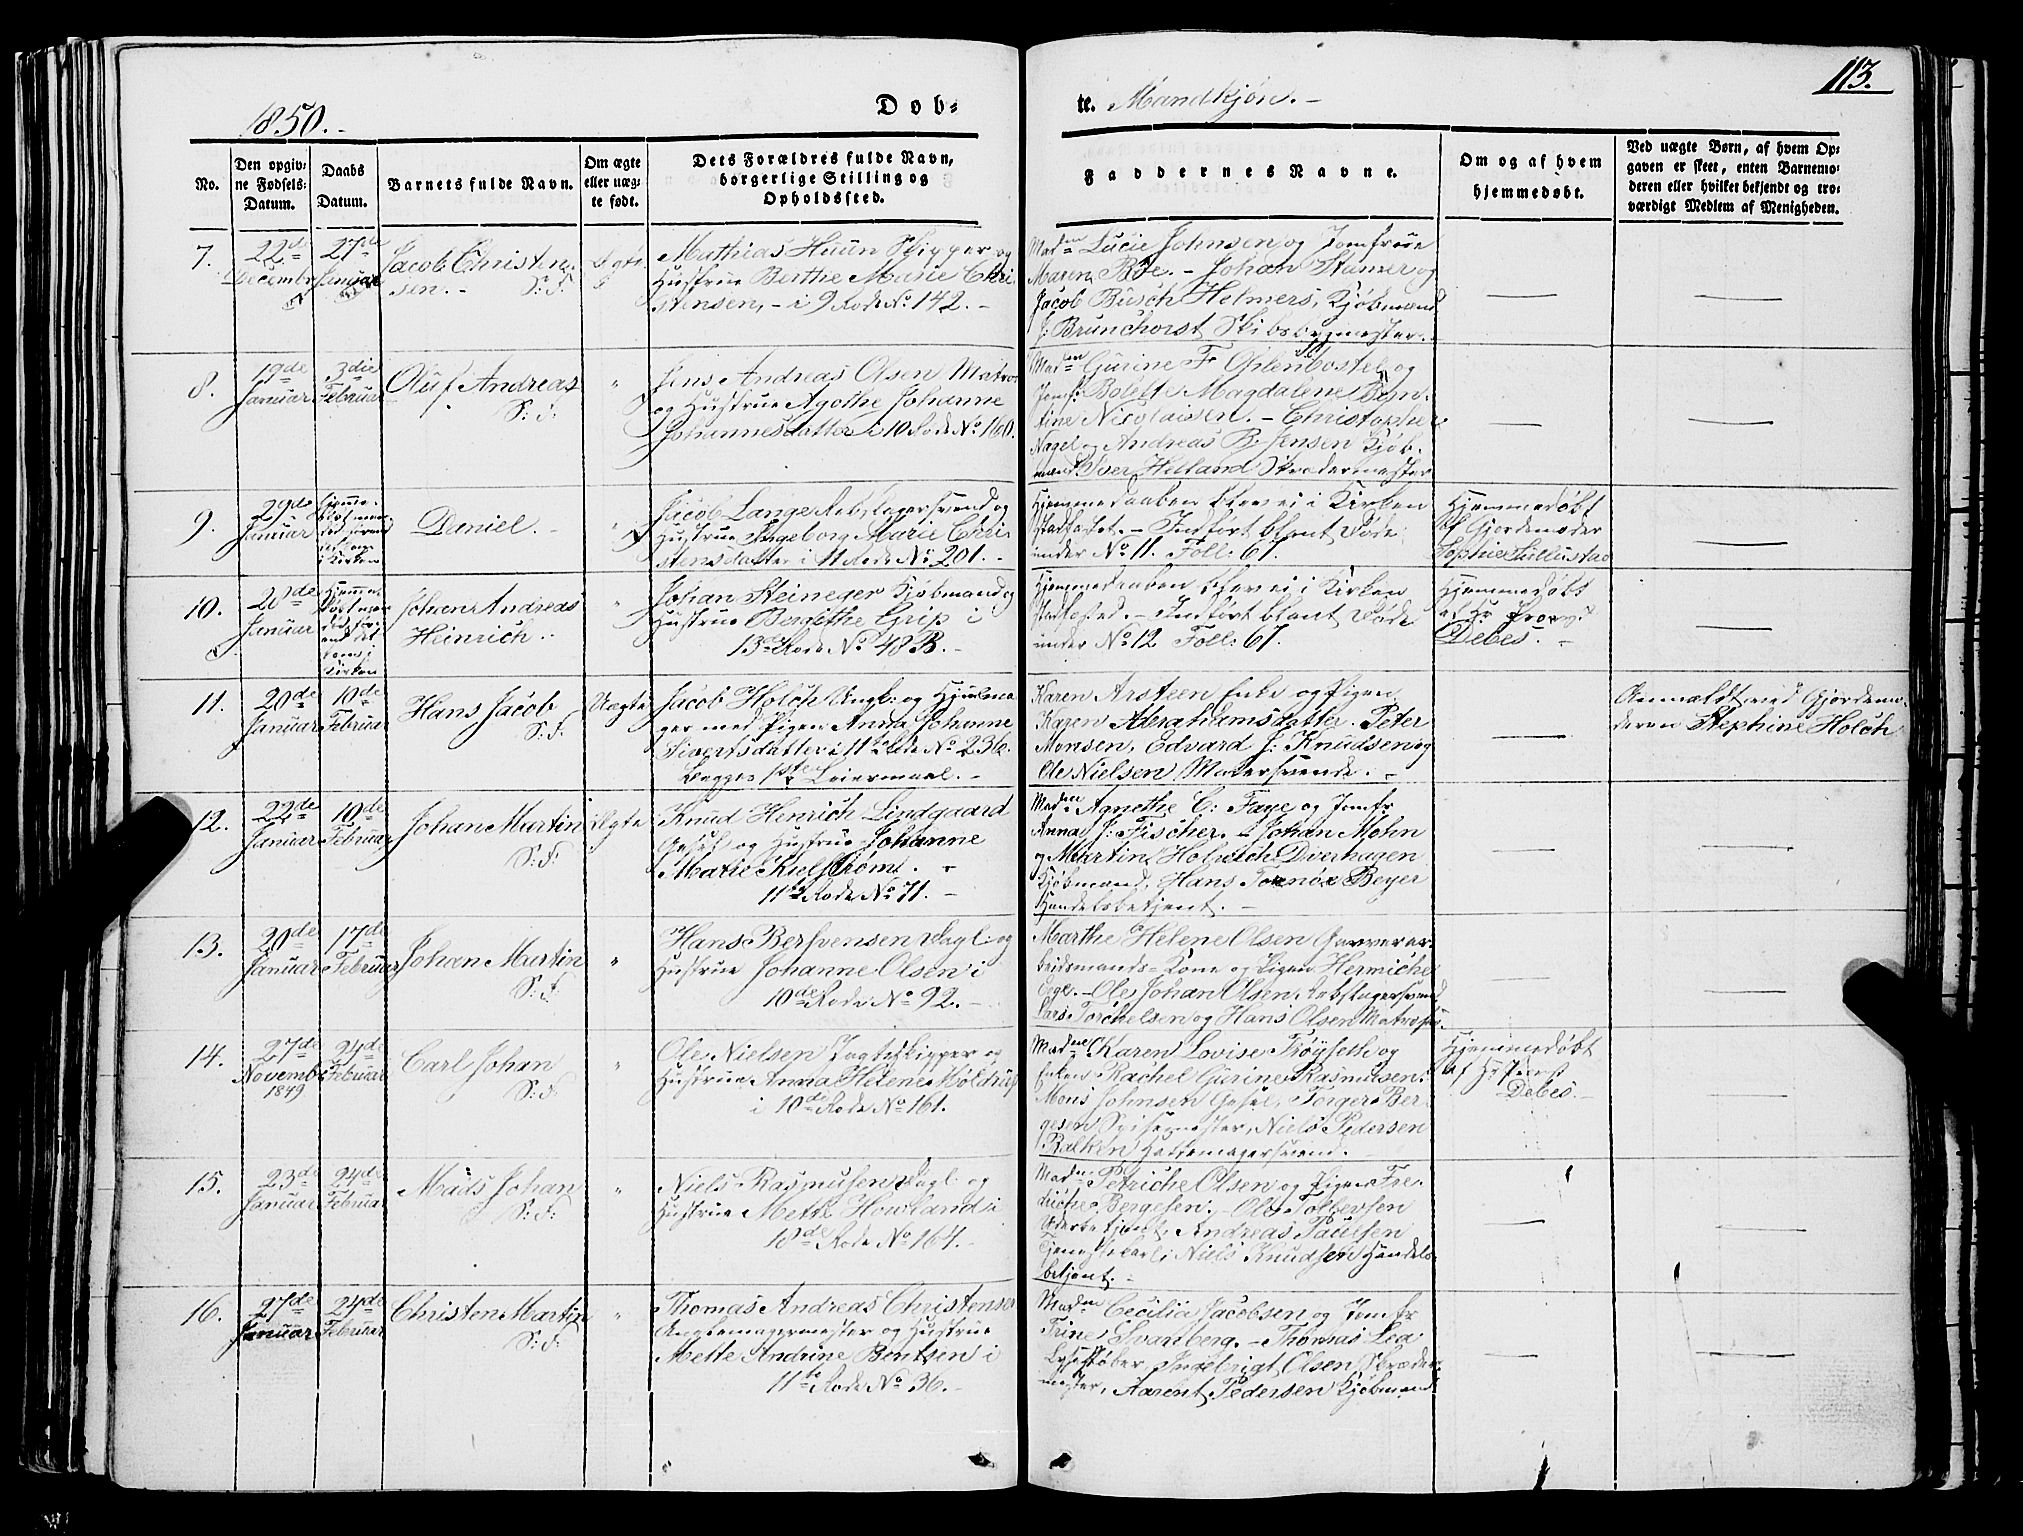 113.
1850.
Dob-
te. Mandkjøn.
No.
Den opgiv-
ne Fødsels-
Datum.
Daabs
Datum.
Barnets fulde Navn.
Om ægte
eller uæg-
te født.
Dets Forældres fulde Navn,
borgerlige Stilling og
Opholdssted.
Faddernes Navne.
Om og af hvem
hjemmedøbt.
Ved uægte Børn, af hvem Op-
gaven er skeet, enten Barnemo-
deren eller hvilket bekjendt og tro-
værdigt Medlem af Menigheden.
7.
22de
December
27de
Januar
Jacob Christen-
sen. S:F:
Ægte
Mathias Huun Skipper og
Hustrue Berthe Marie Chri-
stensen, i 9 Rode No 142.
Madme Lucie Johnsen og Jomfrue
Maren Bøe. Johan Stamer og
Jacob Busch Helmers, Kjøbmænd
J: Brunchorst Skibsbygmester.
8.
19de
Januar
3die
Februar
Oluf Andreas
S:F:
"
Jens Andreas Olsen Matros
og Hustrue Agathe Johanne
Johannesdatter i 10 Rode No 160.
Madme Gurine F
Jomfr: Bolette Magdalene
tine Nicolaisen. Christopher
Nagel og Andreas B. Jensen Kjøb-
mænd. Iver Helland Skrædermester
9.
29de
Januar
Daniel.
"
Jacob Lange Rebslagersvend og
Hustrue Ingeborg Marie Chri-
stensdatter i 11 Rode No 201.
Hjemmedaaben blev ei i Kirken
stadfæstet. Indført blant Døde
under No 11. Foll: 67.
Hjemmedøbt
af Gjordemoder
Sophie
10.
20de
Januar
Johan Andreas
Heinrich.
"
Johan Steineger Kjøbmand og
Hustrue Bergithe Grip i
13de Rode No 48 B.
Hjemmedaaben blev ei i Kirken
stadfæsted. Indført blant Døde
under No 12 Foll: 67.
Hjemmedøbt
af Hr Provst
Debes.
11.
20de
Januar
10de
Februar
Hans Jacob
S:F:
Uægte
Jacob Holch Ungk: og Hjulma-
ger med Pigen Anna Johanne
Sivertsdatter i 11te Rode No 236.
Begges 1ste Leiermaal.
Karen Arsteen Enke og Pigen
Karen Abrahamsdatter. Peter
Monsen, Edvard J: Knudsen og
Ole Nielsen Malersvende.
Anmeldt ved Gjordemo-
deren Stephine Holch
12.
22de
Januar
10de
Februar
Johan Martin
S:F:
Ægte
Knud Henrich Lindgaard
Gesel og Hustrue Johanne
Marie Kielstrøm.
11te Rode No 71.
Madme Agnethe C: Faye og Jomfr
Anna J: Fischer. Johan Mohn
og Martin Holrich Dverhagen
Kjøbmænd, Hans Tornøe Beyer
Handelsbetjent.
13.
20de
Januar
17de
Februar
Johan Martin
S:F:
"
Hans Bersvensen Dagl: og
Hustrue Johanne Olsen i
10de Rode No 92.
Marthe Helene Olsen Garverar-
beidsmands Kone og Pigen Hermiche
Ege. Ole Johan Olsen, Rebslagersvend
Lars Torchelsen og Hans Olsen Matroser.
14.
27de
Novembr
1849
24de
Februar
Carl Johan
S:F:
"
Ole Nielsen Jagteskipper og
Hustrue Anna Helene Møldrup
i 10de Rode No 161.
Madme Karen Lovise Frøyseth og
Enken Rachel Gurine Rasmusen.
Mons Johnsen Gesel, Torger Ber-
gesen Spisemester, Niels Pedersen
Balken Hattemagersvend.
Hjemmedøbt
af Hr Provst
Debes.
15.
23de
Januar
24de
Februar
Mads Johan
S:F:
"
Niels Rasmusen Dagl: og
Hustrue Mette Howland i
10de Rode No 164.
Madme Petriche Olsen og Pigen Fre-
driche Bergesen. Ole Tollevsen
Andreas Paulsen
Tjenestekarl, Niels Knudsen Handels-
betjent.
16.
27de
Januar
24de
Februar
Christen Martin
S:F:
"
Thomas Andreas Christensen
og Hustrue
Mette Andrine Bentsen i
11te Rode No 36.
Madme Cecilia Jacobsen og Jomfr
Trine Svanberg. Thomas Lea
Lysestøber, Ingebrigt Olsen Skræder-
mester, Aarent Pedersen Kjøbmand